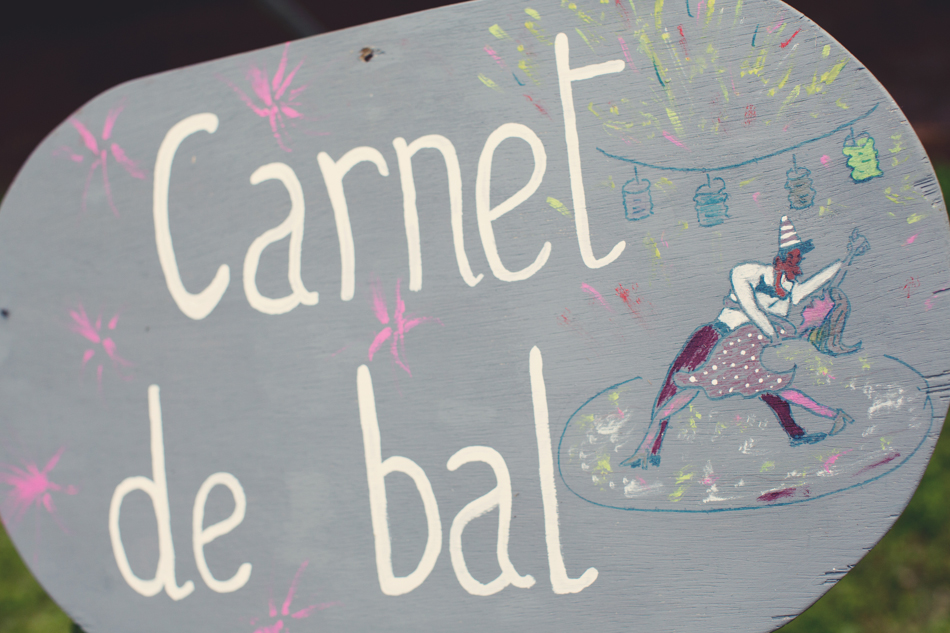 Carnet
de bal